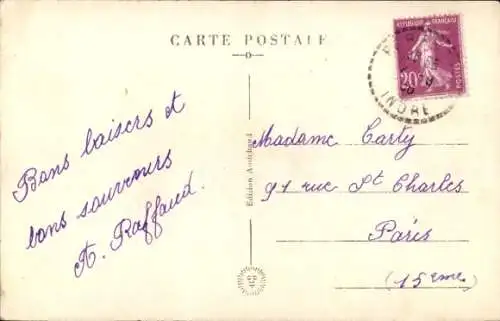 CARTE POSTALE
REPUBLIQUE FRANÇAISE
20c
POSTES
INDRE
Bons baisers et
bons souvenirs
A. Raffaud.
Madame Carty
91 rue St Charles
Paris
(15ème)